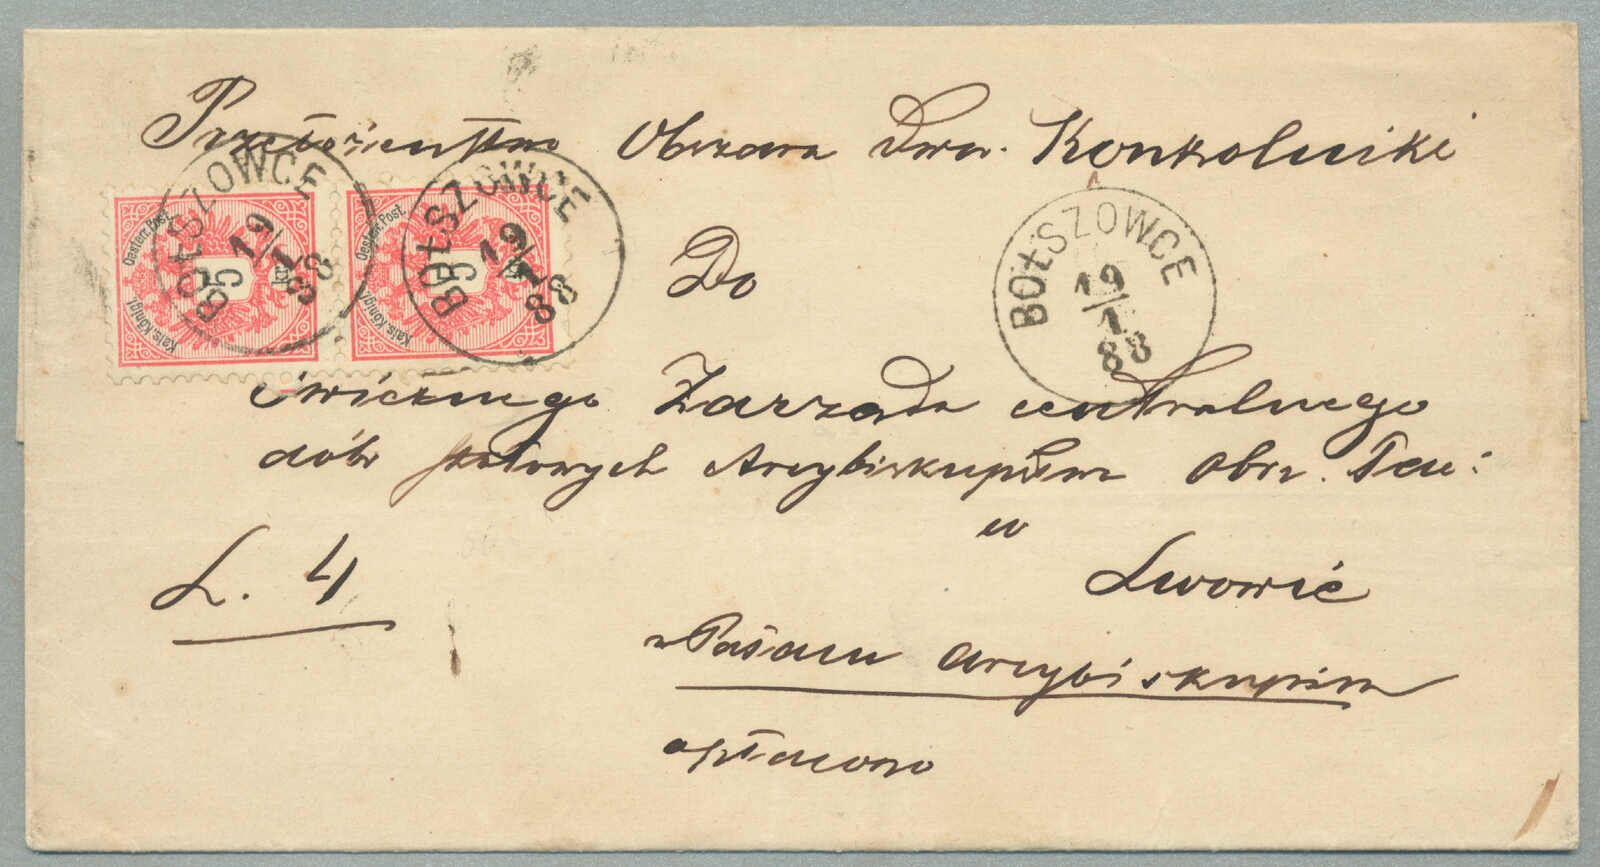 Przełożeństwo Obszaru Dwor. Konkolniki
BOŁSZOWCE
19/1
88
BOŁSZOWCE
19/1
88
BOŁSZOWCE
19/1
88
Kais. Königl. Oesterr. Post.
5
Kais. Königl. Oesterr. Post.
5
Do
Świécznego Zarządu centralnego
dóbr stołowych Arcybiskupstwa obrz.
w
Lwowie
w Pałacu Arcybiskupim
opłacono
L. 4